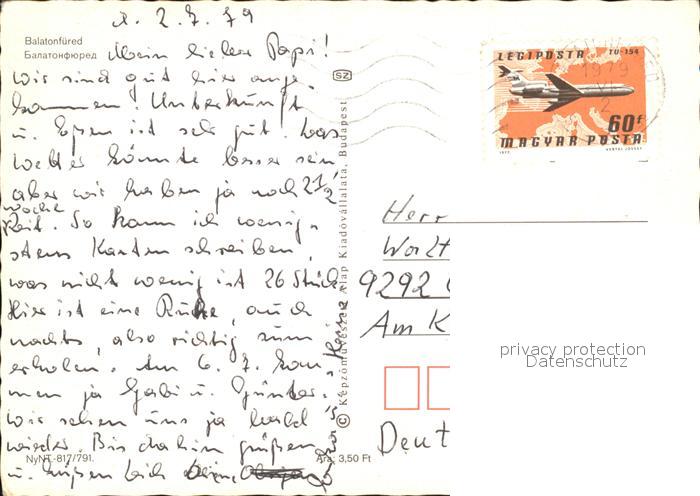 d. 2.7.79
Balatonfüred
Балатонфюред
Mein lieber Papi!
wir sind gut hier ange-
kommen! Unterkunft
u. Essen ist sehr gut. Das
Wetter könnte besser sein
aber wir haben ja noch 2 1/2
Woche
Zeit. So kann ich wenig-
stens Karten schreiben,
was nicht wenig ist 26 Stück
Hier ist eine Ruhe, auch
nachts, also richtig zum
erholen. Am 6. 7. kom-
men ja Gabi u. Günter.
Wir sehen uns ja bald
wieder. Bis dahin grüßen
u. küßen Dich
NyNT-817/791.
Ára: 3,50 Ft
SZ
© Képzőművészeti Alap Kiadóvállalata, Budapest
LÉGIPOSTA
TU-154
1979
60f
MAGYAR POSTA
Herr
9292
Am K
Deut
privacy protection
Datenschutz